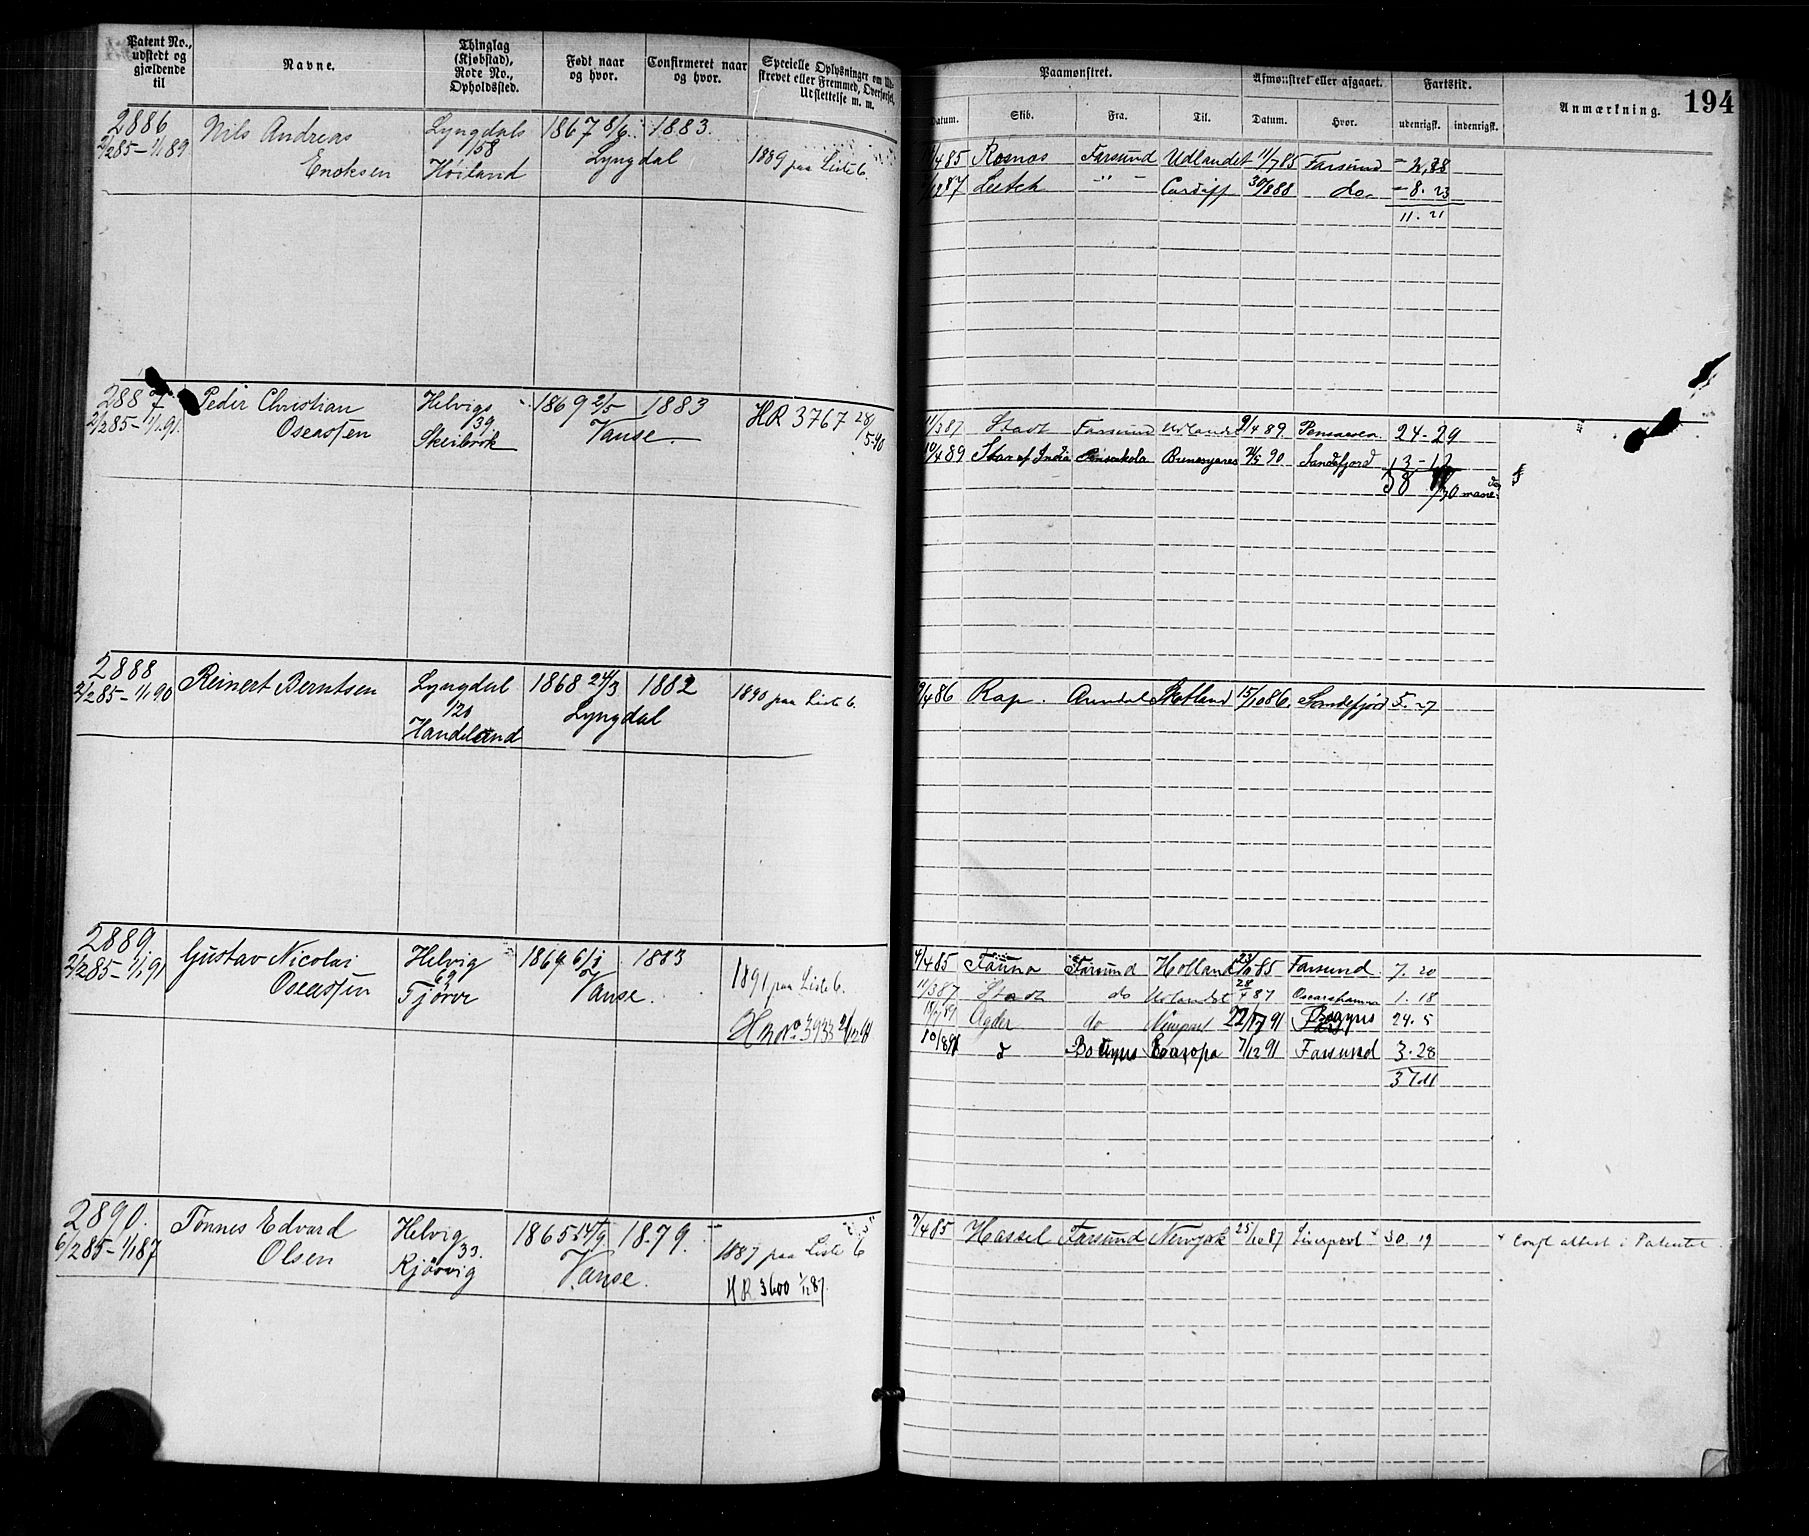 Patent No., udstedt og gjældende til
Navne.
Thinglag (Kjøbstad), Rode No., Opholdssted.
Født naar og hvor.
Confirmeret naar og hvor.
Specielle Oplysninger om Ud-
skrevet eller Fremmed, Overførsel,
Udslettelse m. m.
Paamønstret.
Afmønstret eller afgaaet.
Fartstid.
Anmærkning.
194
Datum.
Skib.
Fra.
Til.
Datum.
Hvor.
udenrigsk.
indenrigsk.
2886
2/285–1/189
Nils Andreas
Enoksen
Lyngdals
1/58
Høiland
1867 8/6
1883.
Lyngdal
1889 paa Liste 6.
/485 Rosnæs Farsund Udlandet 11/785 Farsund
/1287 Leetch " – Cardiff 30/888 do – 8. 23
11. 21
2887
2/285–1/191.
Peder Christian
Oseassen
Helvigs
139
Skeibrok
1869 2/5
1883
Vanse.
HR 3767 28/5-90
11/387 Stadt Farsund Udlandt 9/489 Pensacola 24-29
10/489 Star of India Pensakola 2/5 90 Sandefjord 13-12
38
2888
2/285–1/190
Reinert Berntsen
Lyngdal
120
Handeland
1868 24/3
1882
Lyngdal
1890 paa Liste 6.
9/486 Rap. Arendal Skotland 15/1086. Sandefjord 5. 27
2889
2/285–1/191
Gustav Nicolai
Oseassen
Helvig
69
Tjørve
1869 6/1
1883
Vanse.
1891 paa Liste 6.
H no. 3933
4/485 Fauna Farsund Holland 85 Farsund 7. 20
11/387 Stadt do Udlandet 28/4 87 Oscarshamn 1. 18
Agder do 91 24. 5
10/891 d Europa 7/12 91 Farsund 3. 28
37 11
2890.
6/285–1/187
Tønnes Edvard
Olsen
Helvig
33.
Kjørvig
1865 14/9
1879.
Vanse.
1887 paa Liste 6
HR 3600 1/1287.
7/485 Hassel Farsund Newyork 25/1087 Liverpool + 30. 19
+ Confr attest i Patentet